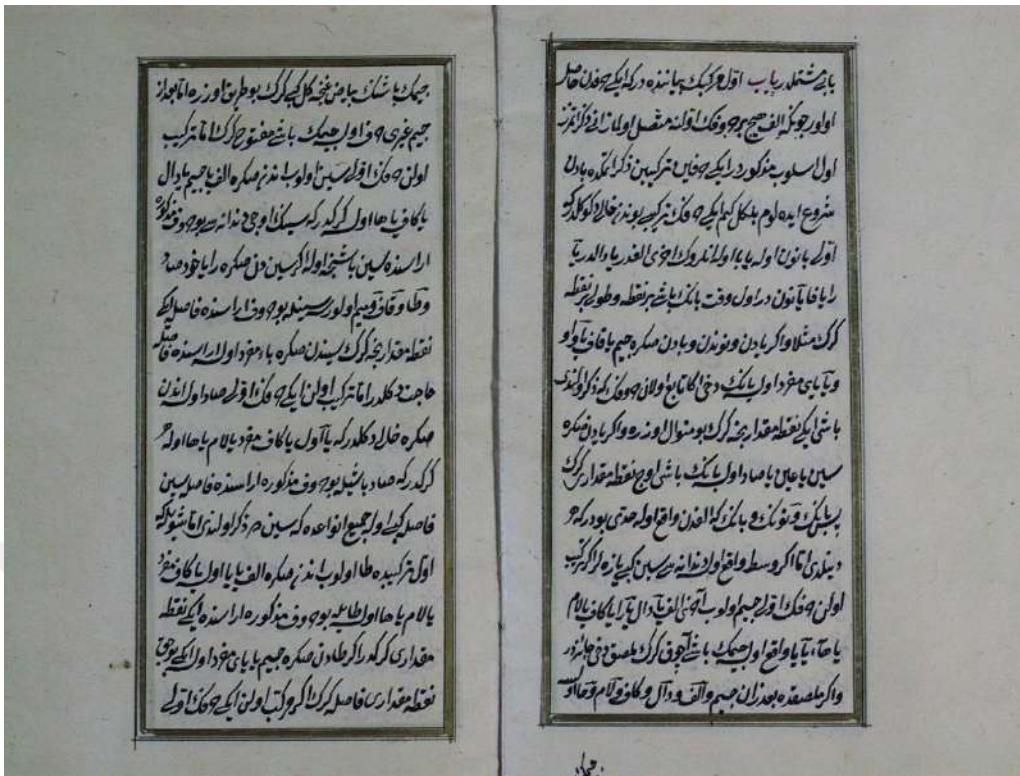 بابی مشتملدر باب اول مرکبک بیاننده درکه ایکی حرفدن حاصل
اولور چونکه الف هیچ بر حروفک اولنه متصل اولماز انی ذکر اتمز
اول اسلوب مذکور در ایکی حرفک ترکیبین ذکر ایتمکده بادن
شروع ایده لوم بلکل کیم ایکی حرفک ترکیبی بوندن خالی دکولدر که
اولی با نون اوله یا یا اوله اندن صکره الفدر یا دالدر یا
را یا فا یا نون در اول وقت بانک باشی بر نقطه و طولی بر نقطه
کرک مثلا واکر بادن و نوندن و یادن صکره جیم یا قاف یا واو
و یا یای مفرد اوله بانک دخی اکا تابع اولان حروفک که ذکر اولندی
باشی ایکی نقطه مقداریجه کرک بو منوال اوزره واکر بادن صکره
سین یا عین یا صاد اوله بانک باشی اوچ نقطه مقداری کرک
پس بانک و نونک و یانک که الفدن واقع اوله حدی بودر که
دینلدی اما اکر وسط واقع اوله دندانهء سین کبی یازه لر اکر ترکیب
اولن حرفک اولی جیم اولوب آخری الف یا دال یا را یا کاف یا لام
یا هاء یا یا واقع اوله جیمک باشی آچوق کرک ملصق دخی جائزدر
واکر ملصقده بعد از ان جیم و الف و دال و کاف و لام و ها اوله
جیمک باشنک بیاض غنچه کل کبی کرک بو طریق اوزره اما بعد از
جیم غیری حرف اوله جیمک باشی مفتوح کرک اما ترکیب
اولن حرفک اولی سین اولوب اندن صکره الف یا جیم یا دال
یا کاف یا ها اوله کرکدر که سینک اوجی دندانه سی بو حروف مذکوره
اراسنده سین باشیجه اوله اکر سین دن صکره را یا خود صاد
و طا و قاف و میم اولور سه ینه بو حروف اراسنده فاصل ایکی
نقطه مقداریجه کرک سیندن صکره یاء مفرد اوله اراسنده فاصله
حاجت دکلدر اما ترکیب اولن ایکی حرفک اولی صاد اوله اندن
صکره خالی دکلدر که یا اول یا کاف مفرد یا لام یا ها اوله
کرکدر که صاد باشیله بو حروف مذکوره اراسنده فاصل سین
فاصل کبی اوله جمیع انواعده که سین ده ذکر اولندی اما شویله که
اول ترکیبده طا اولوب اندن صکره الف یا با اوله یا کاف مفرد
یا لام یا ها اوله طا ایله بو حروف مذکوره اراسنده ایکی نقطه
مقداری کرکدر اکر طادن صکره جیم یا یای مفرد اوله ایکی بوچق
نقطه مقداری فاصله کرک اکر مرکب اولن ایکی حرفک اولی